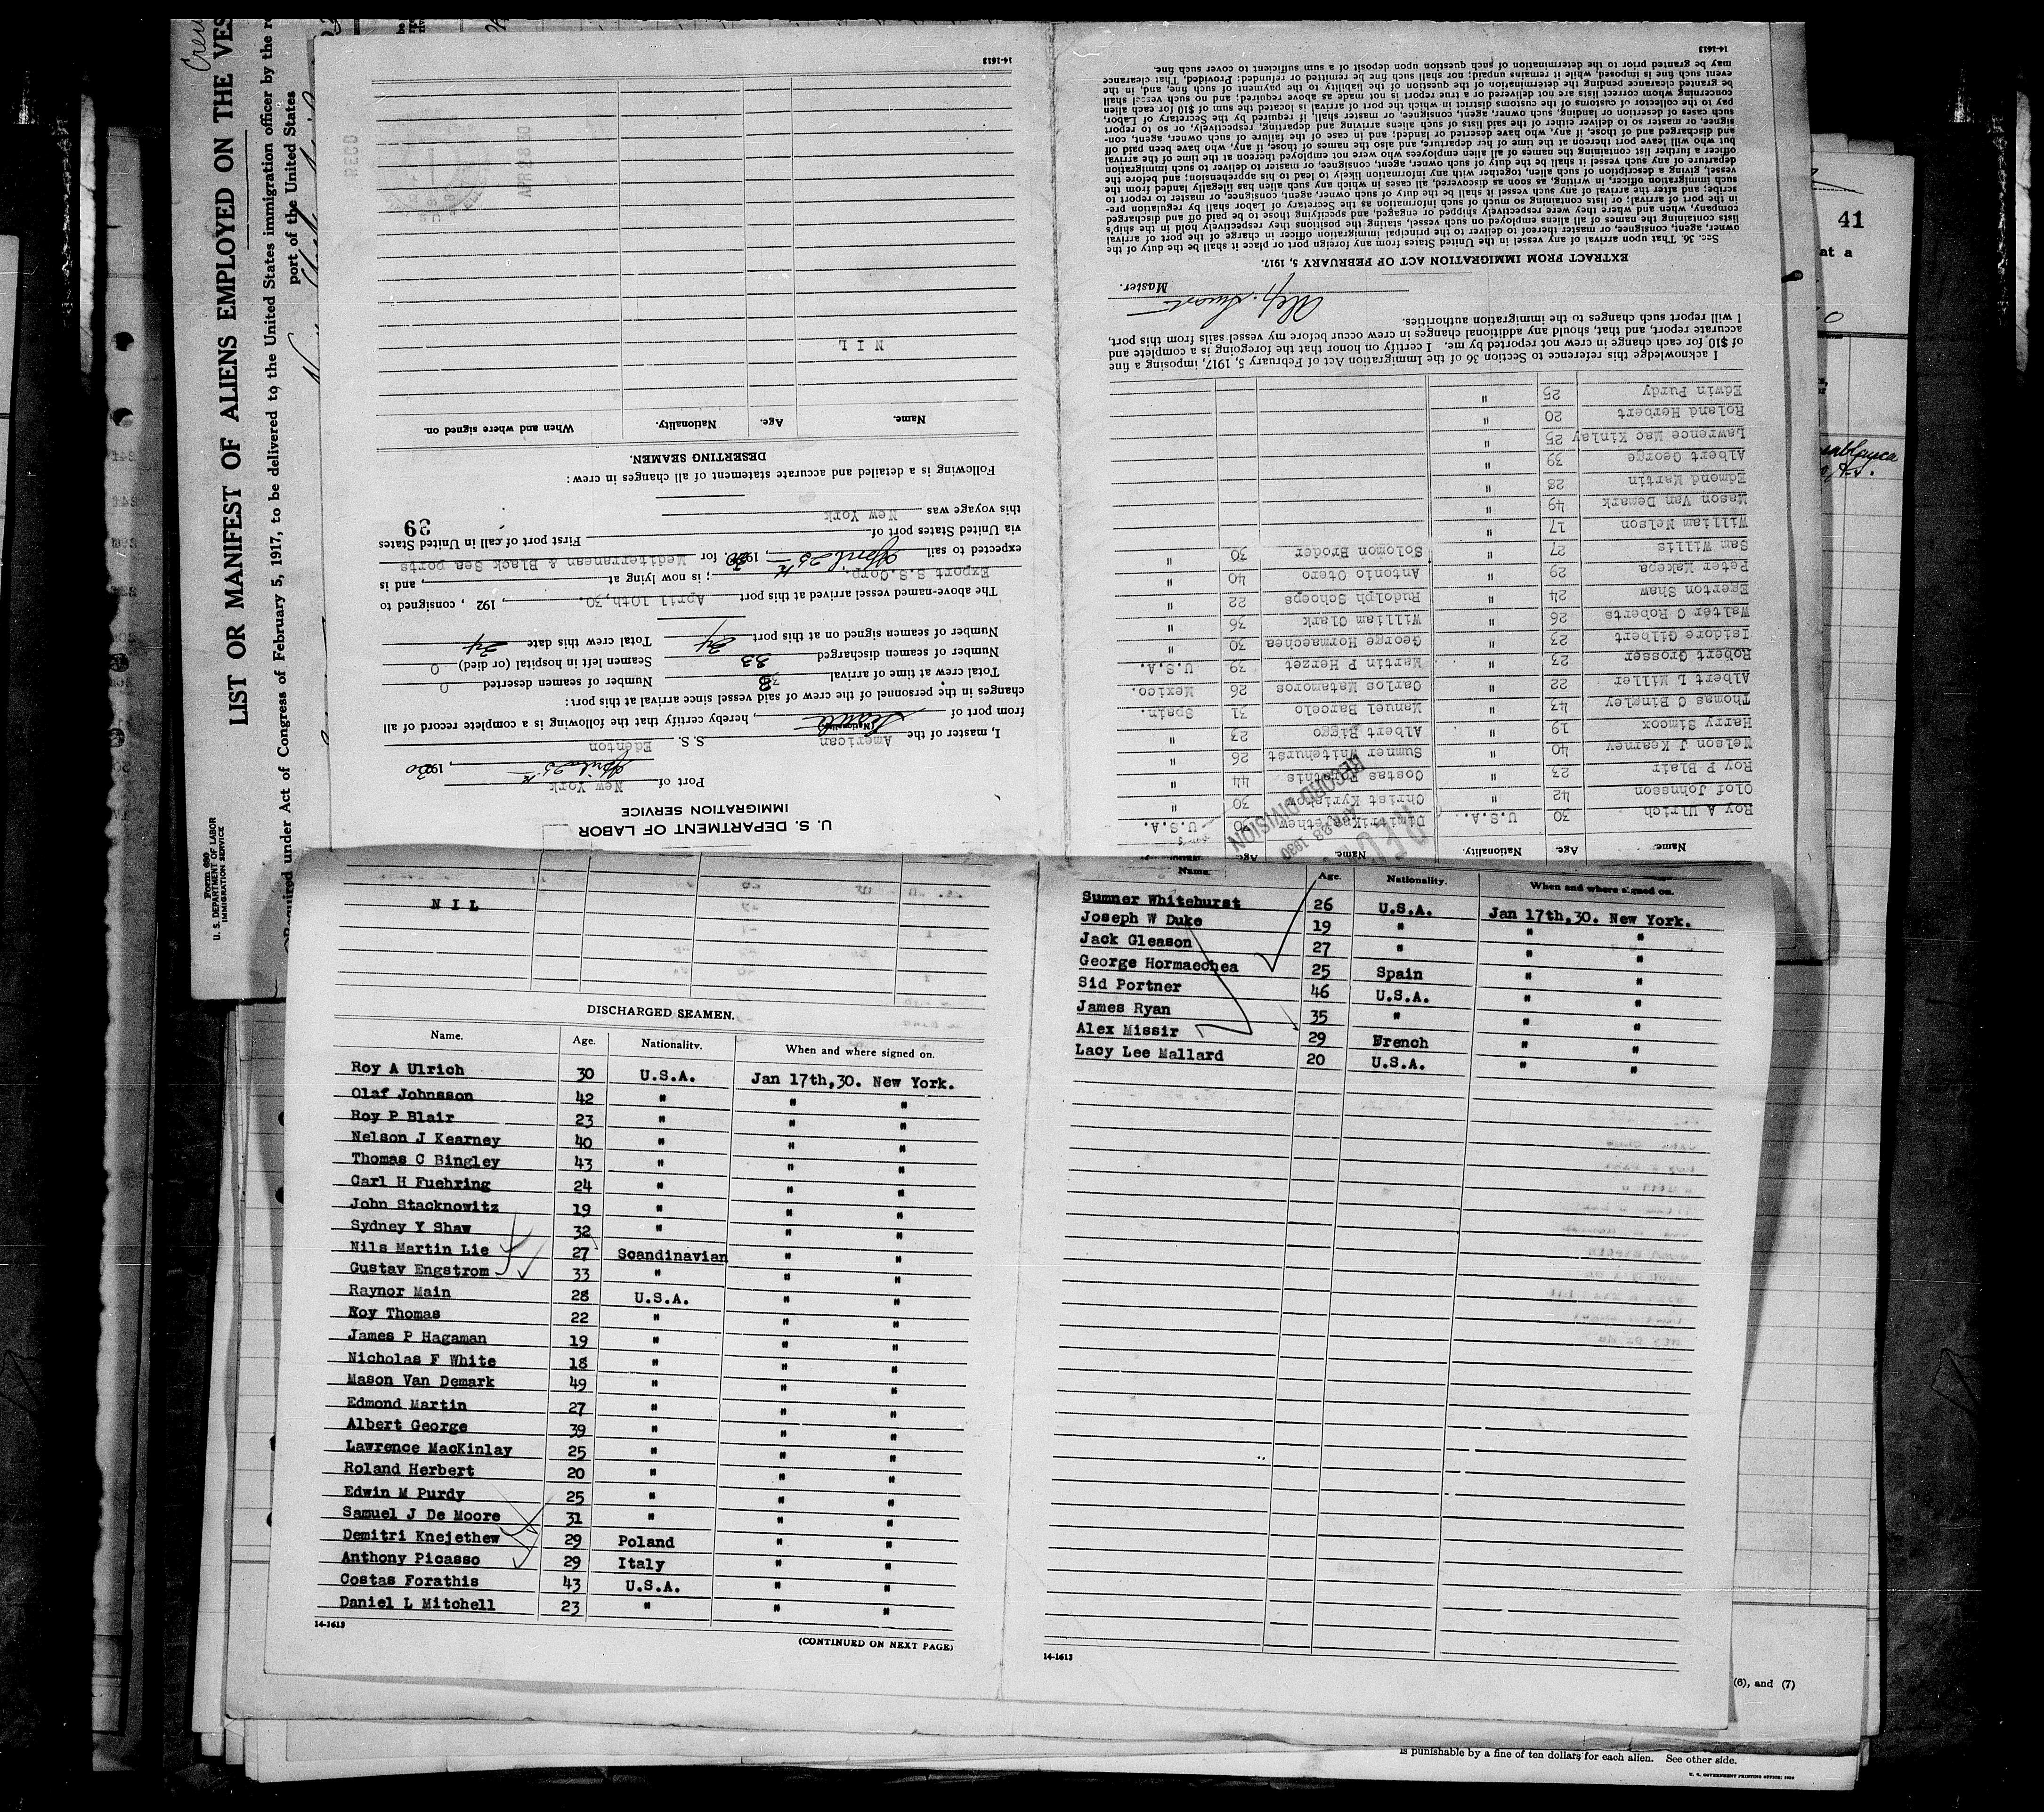 LIST OR MANIFEST OF ALIENS EMPLOYED ON THE VES
Required under Act of Congress of February 5, 1917, to be delivered to the United States immigration officer by the r
port of the United States
Form 680
U. S. DEPARTMENT OF LABOR
IMMIGRATION SERVICE
Crew
41
at a
U. S. DEPARTMENT OF LABOR
IMMIGRATION SERVICE
Port of New York
April 25th, 1930
I, master of the American S.S. Edenton
(Nationality)
from port of , hereby certify that the following is a complete record of all
changes in the personnel of the crew of said vessel since arrival at this port:
Total crew at time of arrival Number of seamen deserted 0
Number of seamen discharged 33 Seamen left in hospital (or died) 0
Number of seamen signed on at this port 34 Total crew this date 34
The above-named vessel arrived at this port April 10th,30. , 192 , consigned to
Export S.S.Corp ; is now lying at , and is
expected to sail April 25th , 1930, for Mediterranean & Black Sea ports
via United States port of First port of call in United States
this voyage was New York
39
Following is a detailed and accurate statement of all changes in crew:
DESERTING SEAMEN.
Name. Age. Nationality. When and where signed on.
N I L
RECD
APR 28 30
14-1613
Name. Age. Nationality. Name. Age.
Roy A Ulrich 30 U.S.A. Dimitri Knejethew 30 U.S.A.
Olof Johnsson 42 " Christ Kyriakow 30 "
Roy P Blair 23 " Costas Forathis 44 "
Nelson J Kearney 40 " Sumner Whitehurst 26 "
Harry Simcox 19 " Albert Biggio 23 "
Thomas C Bingley 43 " Manuel Barcelo 31 Spain.
Albert L Miller 22 " Carlos Matamoros 26 Mexico.
Robert Grosser 23 " Martin P Herzet 39 U.S.A.
Isidore Gilbert 23 " George Hormaechea 30 "
Walter C Roberts 26 " William Clark 36 "
Egerton Shaw 24 " Rudolph Schoeps 22 "
Peter Makepa 29 " Antonio Otero 40 "
Sam Willis 27 " Solomon Broder 30 "
William Nelson 17 "
Mason Van Demark 49 "
Edmond Martin 28 "
Albert George 39 "
Lawrence Mac Kinlay 25 "
Roland Herbert 20 "
Edwin Purdy 25 "
RECORD DIVISION
1930
I acknowledge this reference to Section 36 of the Immigration Act of February 5, 1917, imposing a fine
of $10 for each change in crew not reported by me. I certify on honor that the foregoing is a complete and
accurate report, and that, should any additional changes in crew occur before my vessel sails from this port,
I will report such changes to the immigration authorities.
Master.
EXTRACT FROM IMMIGRATION ACT OF FEBRUARY 5, 1917.
Sec. 36. That upon arrival of any vessel in the United States from any foreign port or place it shall be the duty of the
owner, agent, consignee, or master thereof to deliver to the principal immigration officer in charge of the port of arrival
lists containing the names of all aliens employed on such vessel, stating the positions they respectively hold in the ship's
company, when and where they were respectively shipped or engaged, and specifying those to be paid off and discharged
in the port of arrival; or lists containing so much of such information as the Secretary of Labor shall by regulation pre-
scribe; and after the arrival of any such vessel it shall be the duty of such owner, agent, consignee, or master to report to
such immigration officer, in writing, as soon as discovered, all cases in which any such alien has illegally landed from the
vessel, giving a description of such alien, together with any information likely to lead to his apprehension; and before the
departure of any such vessel it shall be the duty of such owner, agent, consignee, or master to deliver to such immigration
officer a further list containing the names of all alien employees who were not employed thereon at the time of the arrival
but who will leave port thereon at the time of her departure, and also the names of those, if any, who have been paid off
and discharged and of those, if any, who have deserted or landed; and in case of the failure of such owner, agent, con-
signee, or master so to deliver either of the said lists of such aliens arriving and departing, respectively, or so to report
such cases of desertion or landing, such owner, agent, consignee, or master shall, if required by the Secretary of Labor,
pay to the collector of customs of the customs district in which the port of arrival is located the sum of $10 for each alien
concerning whom correct lists are not delivered or a true report is not made as above required; and no such vessel shall
be granted clearance pending the determination of the question of the liability to the payment of such fine, and, in the
event such fine is imposed, while it remains unpaid; nor shall such fine be remitted or refunded: Provided, That clearance
may be granted prior to the determination of such question upon deposit of a sum sufficient to cover such fine.
14-1613
N I L
DISCHARGED SEAMEN.
Name. Age. Nationality. When and where signed on.
Roy A Ulrich 30 U.S.A. Jan 17th,30. New York.
Olaf Johnsson 42 " " "
Roy P Blair 23 " " "
Nelson J Kearney 40 " " "
Thomas C Bingley 43 " " "
Carl H Fuehring 24 " " "
John Stacknowitz 19 " " "
Sydney Y Shaw 32 " " "
Nils Martin Lie 27 Scandinavian " "
Gustav Engstrom 33 " " "
Raynor Main 28 U.S.A. " "
Roy Thomas 22 " " "
James P Hagaman 19 " " "
Nicholas F White 18 " " "
Mason Van Demark 49 " " "
Edmond Martin 27 " " "
Albert George 39 " " "
Lawrence MacKinlay 25 " " "
Roland Herbert 20 " " "
Edwin M Purdy 25 " " "
Samuel J De Moore 31 " " "
Demitri Knejethew 29 Poland " "
Anthony Picasso 29 Italy " "
Costas Forathis 43 U.S.A. " "
Daniel L Mitchell 23 " " "
14-1613
(CONTINUED ON NEXT PAGE)
Name. Age. Nationality. When and where signed on.
Sumner Whitehurst 26 U.S.A. Jan 17th,30. New York.
Joseph W Duke 19 " " "
Jack Gleason 27 " " "
George Hormaechea 25 Spain " "
Sid Portner 46 U.S.A. " "
James Ryan 35 " " "
Alex Missir 29 French " "
Lacy Lee Mallard 20 U.S.A. " "
14-1613
(6), and (7)
is punishable by a fine of ten dollars for each alien. See other side.
U. S. GOVERNMENT PRINTING OFFICE: